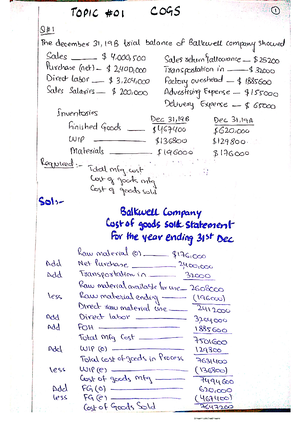 TOPIC #01 COGS
①
Q#1
The december 31, 19B trial balance of Balkwell company showed
Sales — $ 4,000,500 Sales return & allowance — $ 25200
Purchase (net) — $ 2,400,000 Transportation in — $ 32000
Direct labor — $ 3,204,000 Factory overhead — $ 1885600
Sales Salaries — $ 200,000 Advertising Expense — $ 155000
Delivery Expense — $ 65000
Inventories Dec 31,19B Dec 31,19A
Finished Goods — $467400 $620,000
WIP — $136800 $129,800
Materials — $196000 $176,000
Required:-
Total mfg cost
Cost of goods mfg
Cost of goods sold
Sol:-
Balkwell Company
Cost of goods sold Statement
For the year ending 31st Dec
Raw material (o) — $176,000
Add Net Purchase — 2400,000
Add Transportation in — 32000
Raw material available for use — 2608000
less Raw material ending — (196000)
Direct raw material Use — 2412000
Add Direct labor — 3204000
Add FOH — 1885600
Total Mfg Cost — 7501600
Add WIP (o) — 129800
Total cost of goods in Process 7631400
Less WIP (e) — (136800)
Cost of goods mfg — 7494600
Add FG (o) — 620,000
less FG (e) — (467400)
Cost of Goods Sold 7647200